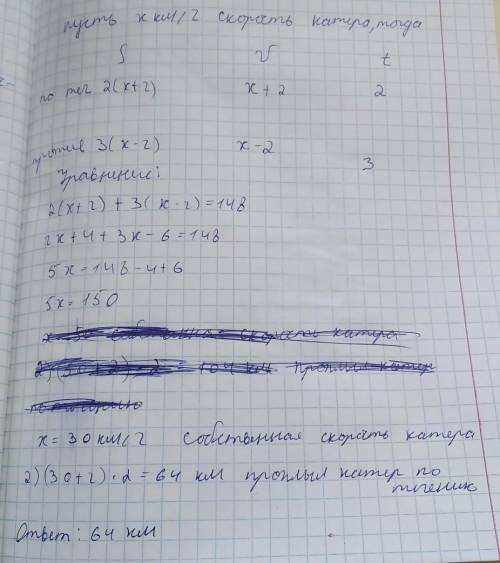 пусть x км/г скорость катера, тогда
S V t
по теч 2(x+2) x+2 2
против 3(x-2) x-2 3
Уравнение:
2(x+2) + 3(x-2) = 148
2x+4+3x-6=148
5x=148-4+6
5x=150
x=30 км/г собственная скорость катера
2) (30+2)·2=64 км проплыл катер по
течению
Ответ: 64 км